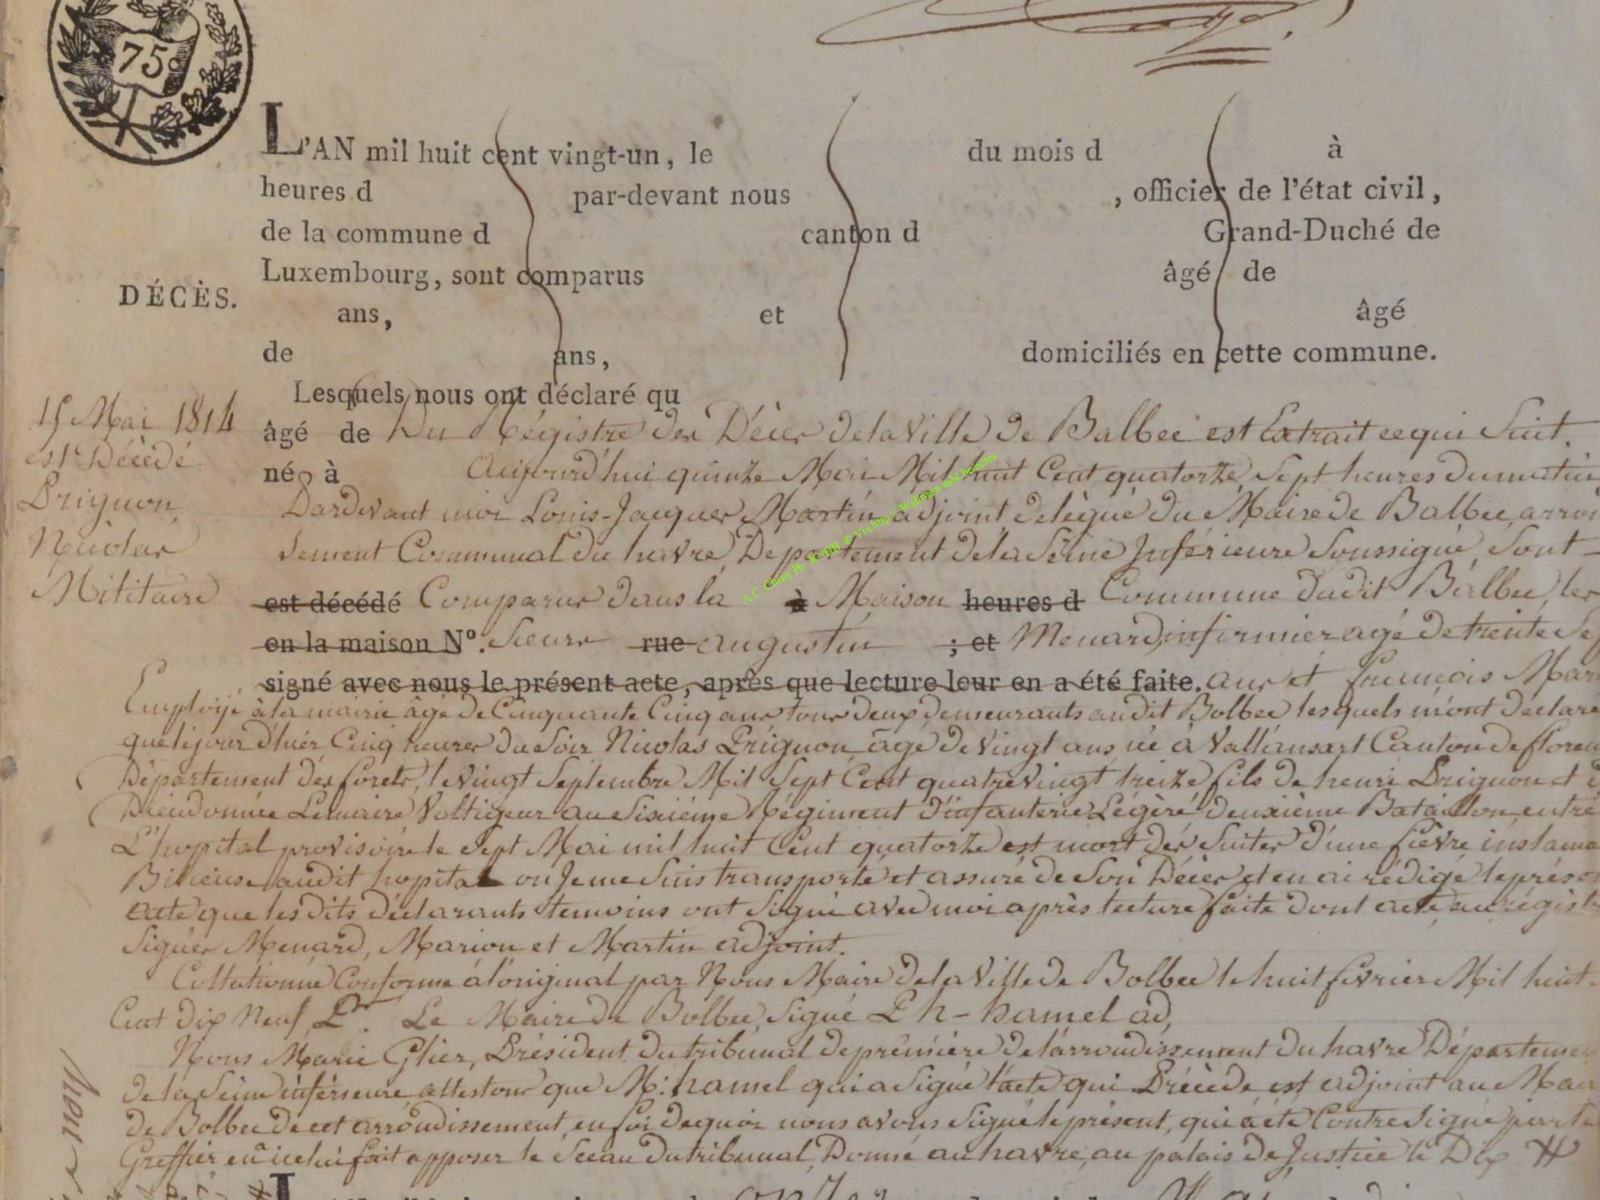 75c
L'AN mil huit cent vingt-un, le du mois d à
heures d par-devant nous , officier de l'état civil,
de la commune d canton d Grand-Duché de
Luxembourg, sont comparus âgé de
DÉCÈS.
ans, et âgé
de ans, domiciliés en cette commune.
Lesquels nous ont déclaré qu
15 Mai 1814
est Décédé
Prignon
Nicolas
Militaire
âgé de Du Régistre des Décès de la Ville de Balbec est Extrait ce qui Suit.
né à Aujourd'hui quinze Mai Mil huit Cent quatorze, Sept heures du matin
Pardevant moi Louis-Jacques Martin, adjoint délégué du Maire de Balbec, arron
dissement Communal du havre, Département de la Seine Inférieure Soussigné, Sont
est décédé Comparus dans la à Maison heures d Commune dudit Balbec, les
en la maison N°. Sieurs rue augustin ; et Menard, infirmier agé de trente Se
signé avec nous le présent acte, après que lecture leur en a été faite. ans et françois Mar
Employé à la mairie âgé de Cinquante Cinq ans tous deux demeurants audit Bolbec lesquels m'ont déclaré
que le jour d'hier Cinq heures du Soir Nicolas Prignon, âgé de Vingt ans, né à Vallansart Canton de floren
Département des forets, le vingt Septembre Mil Sept Cent quatrevingt treize fils de henri Prignon et d
Dieudonnée Lemaire Voltigeur au Sixième Régiment d'infanterie Légère deuxième Bataillon, entré
L'hopital provisoire le Sept Mai mil huit Cent quatorze est mort des Suites d'une fièvre inflama
Bilieuse audit hopital où Je me Suis transporté et assuré de Son Décès, et en ai rédigé le prése
acte que les dits déclarants temoins ont Signé avec moi après lecture faite dont acte, au régistr
Signés Menard, Marion et Martin adjoint.
Collationné Conforme à l'original par Nous Maire de la Ville de Bolbec le huit fevrier Mil huit
Cent dix Neuf, Pr. Le Maire de Bolbec, Signé Ph-hamel ad,
Nous Marie Glier, Président du tribunal de première de l'arroudissement du havre Départemen
de la Seine inférieure attestons que M: hamel qui a Signé l'acte qui Précède est adjoint au Mair
de Bolbec de cet arrondissement, en foi de quoi nous avons Signé le présent, qui a été Contre Signé par le
Greffier et à icelui fait apposer le Sceau du tribunal, Donné au havre, au palais de Justice le Dix #